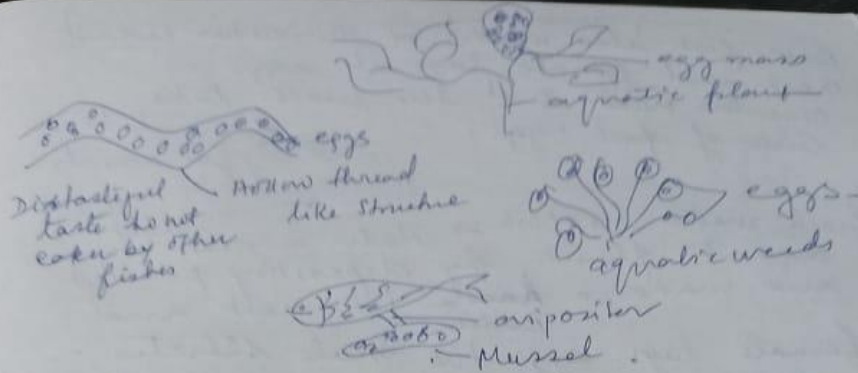 egg mass
aquatic plant
eggs
Distasteful
taste to not
eaten by other
fishes
Hollow thread
like structure
eggs
aquatic weeds
ovipositor
Mussel .